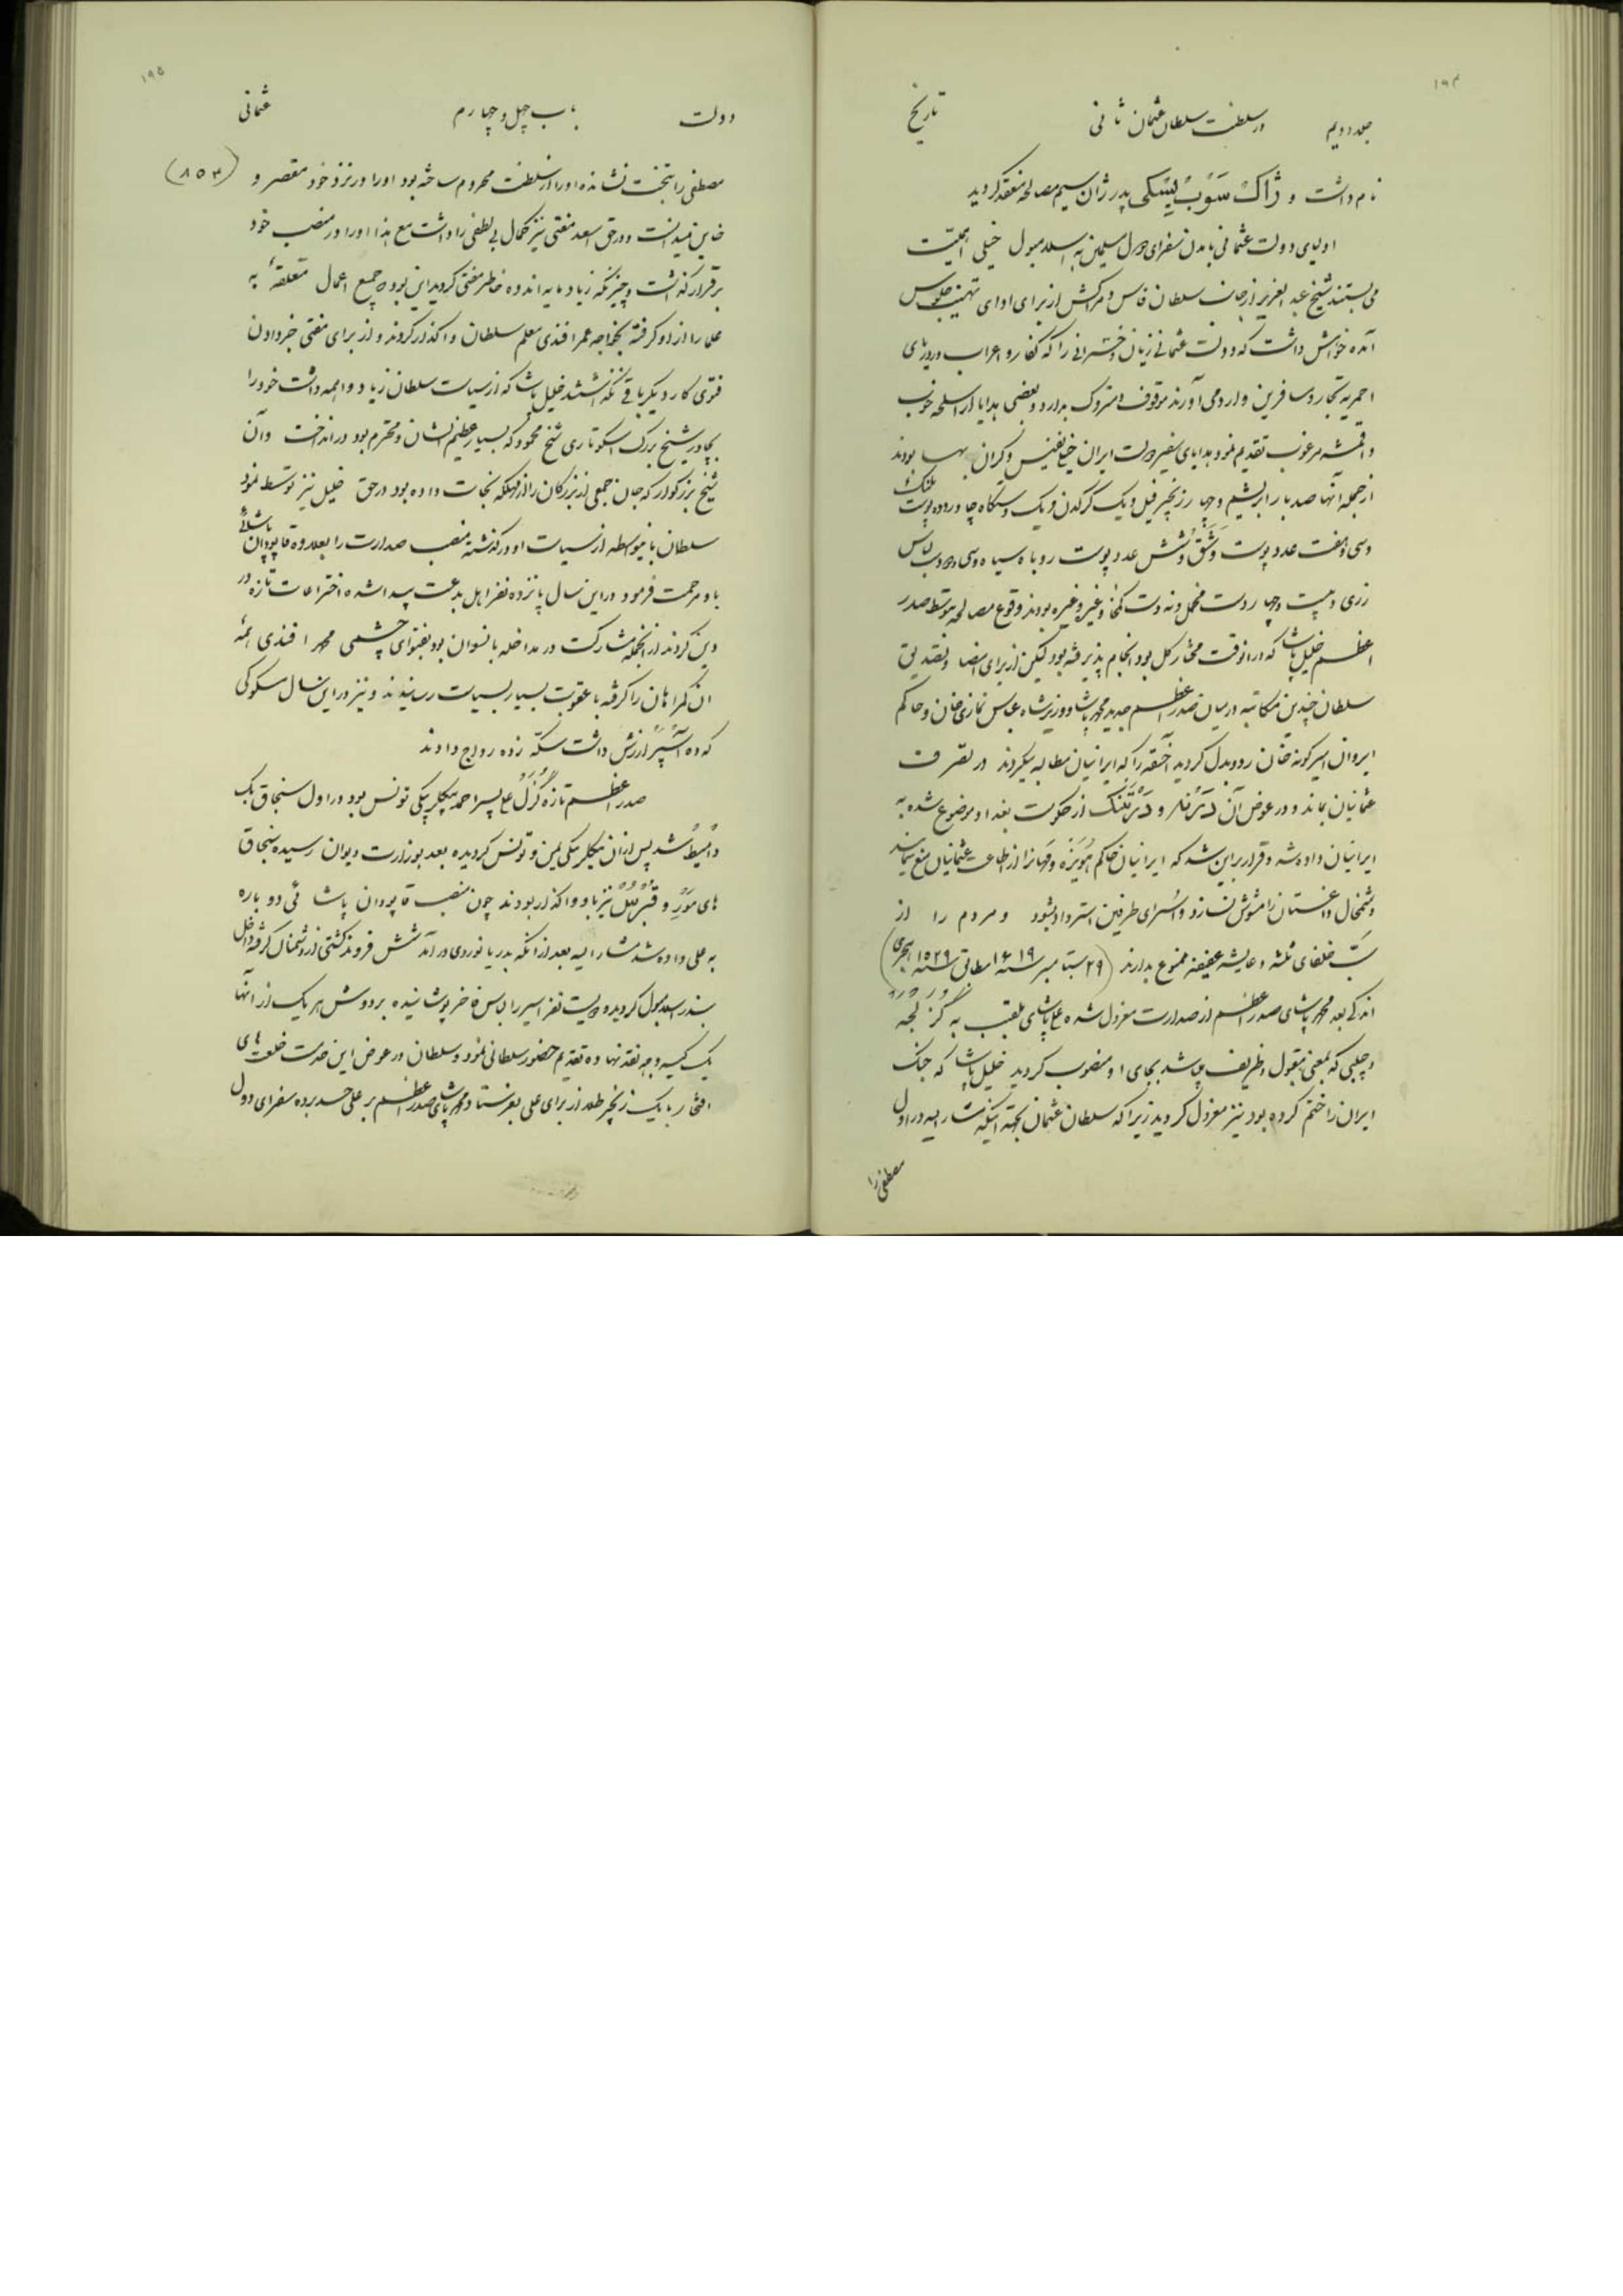 ۱۹۴
جلد دویم در سلطنت سلطان عثمان ثانی تاریخ
نام داشت و ژاک سوب یسکی پدر ژان سیم مصالحه منعقد گردید
اولیای دولت عثمانی بآمدن سفرای دول مسلمین به اسلامبول خیلی اهمیّت
می بستند شیخ عبد العزیز از جانب سلطان فاس و مراکش از برای ادای تهنیت جلوس
آمده خواهش داشت که دولت عثمانی زنان و دخترانی را که کفار و اعراب در دریای
احمر به تجار و مسافرین وارد می آورند موقوف و متروک بدارد و بعضی هدایا از اسلحه خوب
و اقمشه مرغوب تقدیم نمود هدایای سفیر دولت ایران خیلی نفیس و گران بها بودند
از جمله آنها صد بار ابریشم و چهار زنجیر فیل و یک کرگدن و یک دستگاه چادر و ده پوست پلنگ
و سی و هفت عدد پوست وشق و شش عدد پوست روباه سیاه و سی و دو دست لباس
زری و بیست و چهار دست مخمل و نه دست کمخا و غیر و غیره بودند وقوع مصالحه بتوسط صدر
اعظم خلیل پاشا که در آنوقت مختار کل بود انجام پذیرفته بود لیکن از برای امضا و تصدیق
سلطان چندین مکاتبه در میان صدر اعظم جدید محمد پاشا و وزیر شاه عباس نمازی خان و حاکم
ایروان امیر گونه خان رد و بدل گردید آخسقه را که ایرانیان مطالبه میکردند در تصرف
عثمانیان بماند و در عوض آن درنه و درتنک از حکومت بغداد موضوع شده به
ایرانیان داده شد و قرار بر این شد که ایرانیان حاکم هویزه و را از اطاعت عثمانیان منع ننمایند
و شمخال داغستان را مشوش نسازد و اسرای طرفین استرداد بشود و مردم را از
سبّ خلفای ثلثه و عایشه عفیفه ممنوع بدارند (۲۹ سبتامبر سنه ۱۶۱۹ مطابق سنه ۱۵۲۹ هجری)
اندکی بعد محمد پاشای صدر اعظم از صدارت معزول شده علی پاشای ملقب به گزلجه
و چلبی که بمعنی مقبول و ظریف میباشد بجای او منصوب گردید خلیل پاشا که جنک
ایران را ختم کرده بود نیز معزول گردید زیرا که سلطان عثمان بجهة اینکه مشار الیه در اول
مصطفی را
۱۹۵
دولت باب چهل و چهارم عثمانی
مصطفی را بتخت نشانده او را از سلطنت محروم ساخته بود او را در نزد خود مقصر و (۸۵۳)
خاین میدانست و در حق اسعد مفتی نیز کمال بی لطفی را داشت مع هذا او را در منصب خود
برقرار گذاشت و چیزیکه زیاد مایه اندوه خاطر مفتی گردید این بود که جمیع اعمال متعلقهٔ به
علما را از او گرفته بخواجه عمر افندی معلم سلطان واگذار کردند و از برای مفتی جز دادن
فتوی کار دیگر باقی نگذاشتند خلیل پاشا که از سیاست سلطان زیاد واهمه داشت خود را
بچادر شیخ بزرک اسکوتاری شیخ محمود که بسیار عظیم الشان و محترم بود در انداخت و آن
شیخ بزرگوار که جان جمعی از بزرگان را از مهلکه نجات داده بود در حق خلیل نیز توسط نمود
سلطان باینواسطه از سیاست او در گذشته منصب صدارت را بعلاوه قاپودان پاشائی
باو مرحمت فرمود در این سال پانزده نفر اهل بدعت پیدا شده اختراعات تازه در
دین کردند از آنجمله مشارکت در مداخله با نسوان بود بفتوای چشمی محمد افندی همهٔ
ان گمراهان را گرفته با عقوبت بسیار بسیاست رسانیدند و نیز در این سال مسکوکی
که ده آسپر ارزش داشت سکّه زده رواج دادند
صدر اعظم تازه گزل علی پسر احمد بیگلربیگی تونس بود در اول سنجاق بک
دامیط شد پس از ان بیگلربیگی یمن و تونس گردیده بعد بوزارت دیوان رسیده سنجاق
های موره و قبرس نیز باو واگذار بودند چون منصب قاپودان پاشائی دوباره
به علی داده شد مشار الیه بعد از آنکه بدریا نوردی در آمد شش فروند کشتی از دشمنان گرفته داخل
بندر اسلامبول گردید و دویست نفر اسیر را لباس فاخر پوشانیده بر دوش هر یک از آنها
یک کیسه وجه نقد نهاده تقدیم حضور سلطانی نمود و سلطان در عوض این خدمت خلعت های
افتخار با یک زنجیر طلا از برای علی بفرستاد محمد پاشای صدر اعظم بر علی حسد برده سفرای دول